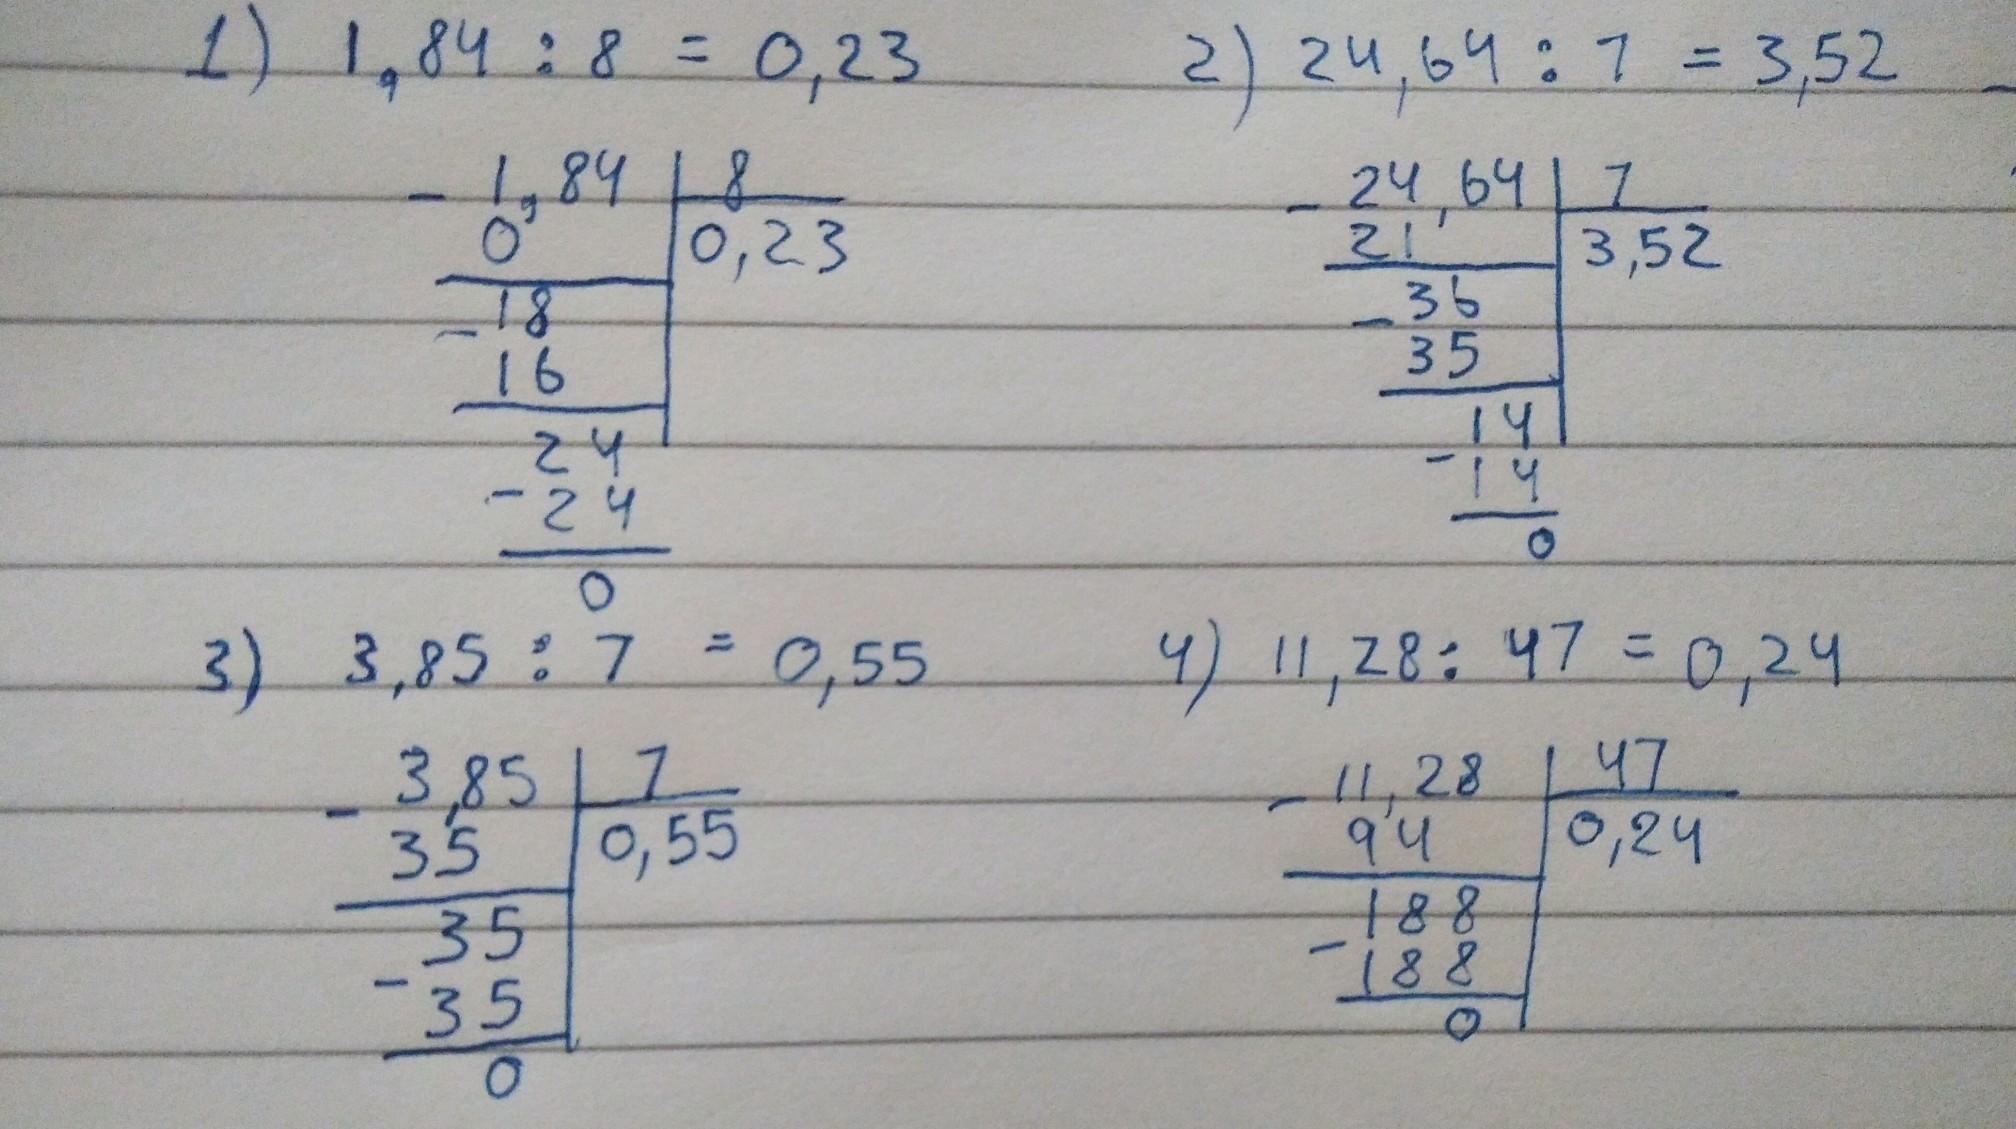 1) 1,84 : 8 = 0,23
- 1,84 | 8
0 | 0,23
- 18
16
24
- 24
0
2) 24,64 : 7 = 3,52
- 24,64 | 7
21 | 3,52
- 36
35
14
- 14
0
3) 3,85 : 7 = 0,55
- 3,85 | 7
35 | 0,55
35
- 35
0
4) 11,28 : 47 = 0,24
- 11,28 | 47
94 | 0,24
188
- 188
0